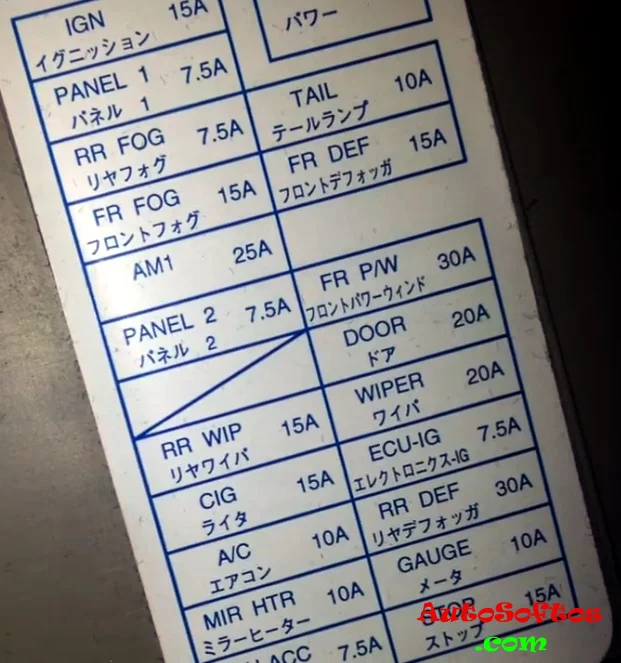 IGN 15A
イグニッション
パワー
PANEL 1 7.5A
パネル 1
TAIL 10A
テールランプ
RR FOG 7.5A
リヤフォグ
FR DEF 15A
フロントデフォッガ
FR FOG 15A
フロントフォグ
AM1 25A
FR P/W 30A
フロントパワーウィンド
PANEL 2 7.5A
パネル 2
DOOR 20A
ドア
WIPER 20A
ワイパ
RR WIP 15A
リヤワイパ
ECU-IG 7.5A
エレクトロニクス-IG
CIG 15A
ライタ
RR DEF 30A
リヤデフォッガ
A/C 10A
エアコン
GAUGE 10A
メータ
MIR HTR 10A
ミラーヒーター
STOP 15A
ストップ
ACC 7.5A
AutoSoftos
.com